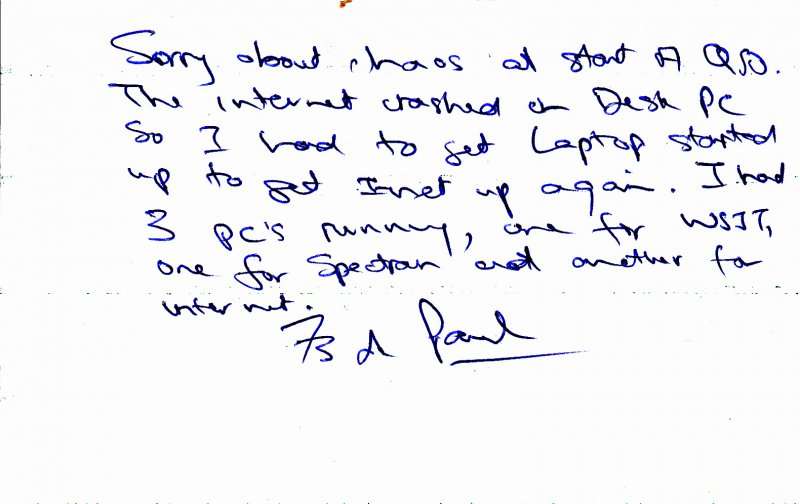 Sorry about chaos at start of QSO.
The internet crashed on Desk PC
So I had to get Laptop started
up to get I-net up again. I had
3 PC's running, one for WSJT,
one for Spectran and another for
internet.
73 de Paul